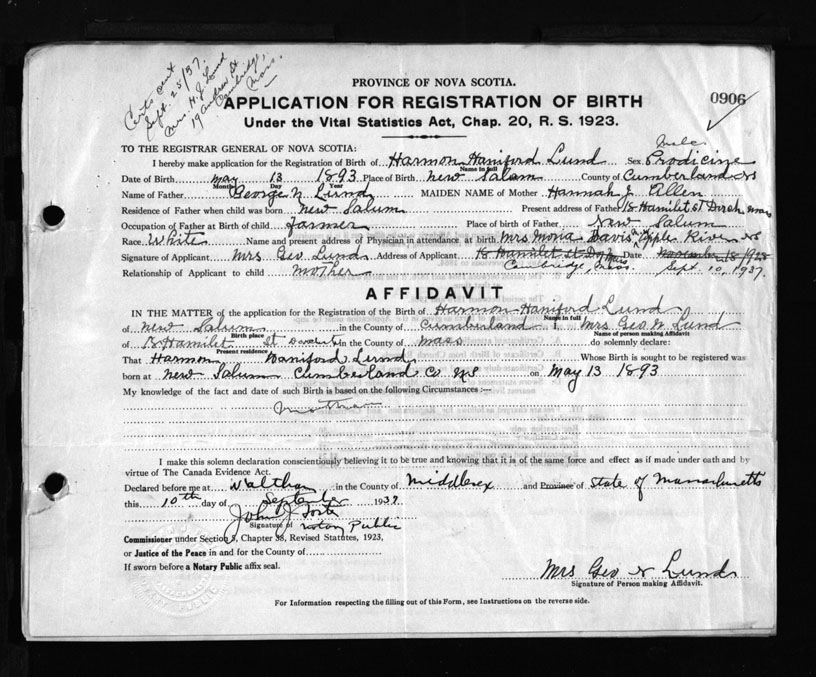 Certs sent
Sept. 25/37.
Mrs. H. J. Lund
19 Andrew St
Cambridge,
Mass.
PROVINCE OF NOVA SCOTIA.
APPLICATION FOR REGISTRATION OF BIRTH 0906
Under the Vital Statistics Act, Chap. 20, R. S. 1923.
TO THE REGISTRAR GENERAL OF NOVA SCOTIA: Male.
I hereby make application for the Registration of Birth of Harmon Haniford Lund Sex
Name in full
Date of Birth May 13 1893 Place of Birth New Salam County of Cumberland NS
Month Day Year
Name of Father George N Lund MAIDEN NAME of Mother Hannah J. Allen
Residence of Father when child was born New Salum Present address of Father 18 Hamilet ST
Occupation of Father at Birth of child Farmer Place of birth of Father New Salum
Race White Name and present address of Physician in attendance at birth Mrs Mona Davis Apple River NS
Signature of Applicant Mrs. Geo. Lund Address of Applicant 18 Hamilet St Date November 18/1928
Cambridge, Mass. Sept. 10, 1937.
Relationship of Applicant to child Mother
AFFIDAVIT
IN THE MATTER of the application for the Registration of the Birth of Harmon Haniford Lund
Name in full
of New Salum in the County of Cumberland I, Mrs Geo N Lund
Birth place Name of person making Affidavit
of 18 Hamilet St in the County of Mass do solemnly declare:
Present residence
That Harmon Haniford Lund Whose Birth is sought to be registered was
born at New Salum Cumberland Co NS on May 13 1893
My knowledge of the fact and date of such Birth is based on the following Circumstances :—
Mother
I make this solemn declaration conscientiously believing it to be true and knowing that it is of the same force and effect as if made under oath and by
virtue of The Canada Evidence Act.
Declared before me at Waltham in the County of Middlesex and Province of State of Massachusetts
this 10th day of September 1937
John J Foster
Signature of Notary Public
Commissioner under Section 5, Chapter 38, Revised Statutes, 1923,
or Justice of the Peace in and for the County of
If sworn before a Notary Public affix seal.
Mrs Geo N Lund
Signature of Person making Affidavit.
For Information respecting the filling out of this Form, see Instructions on the reverse side.